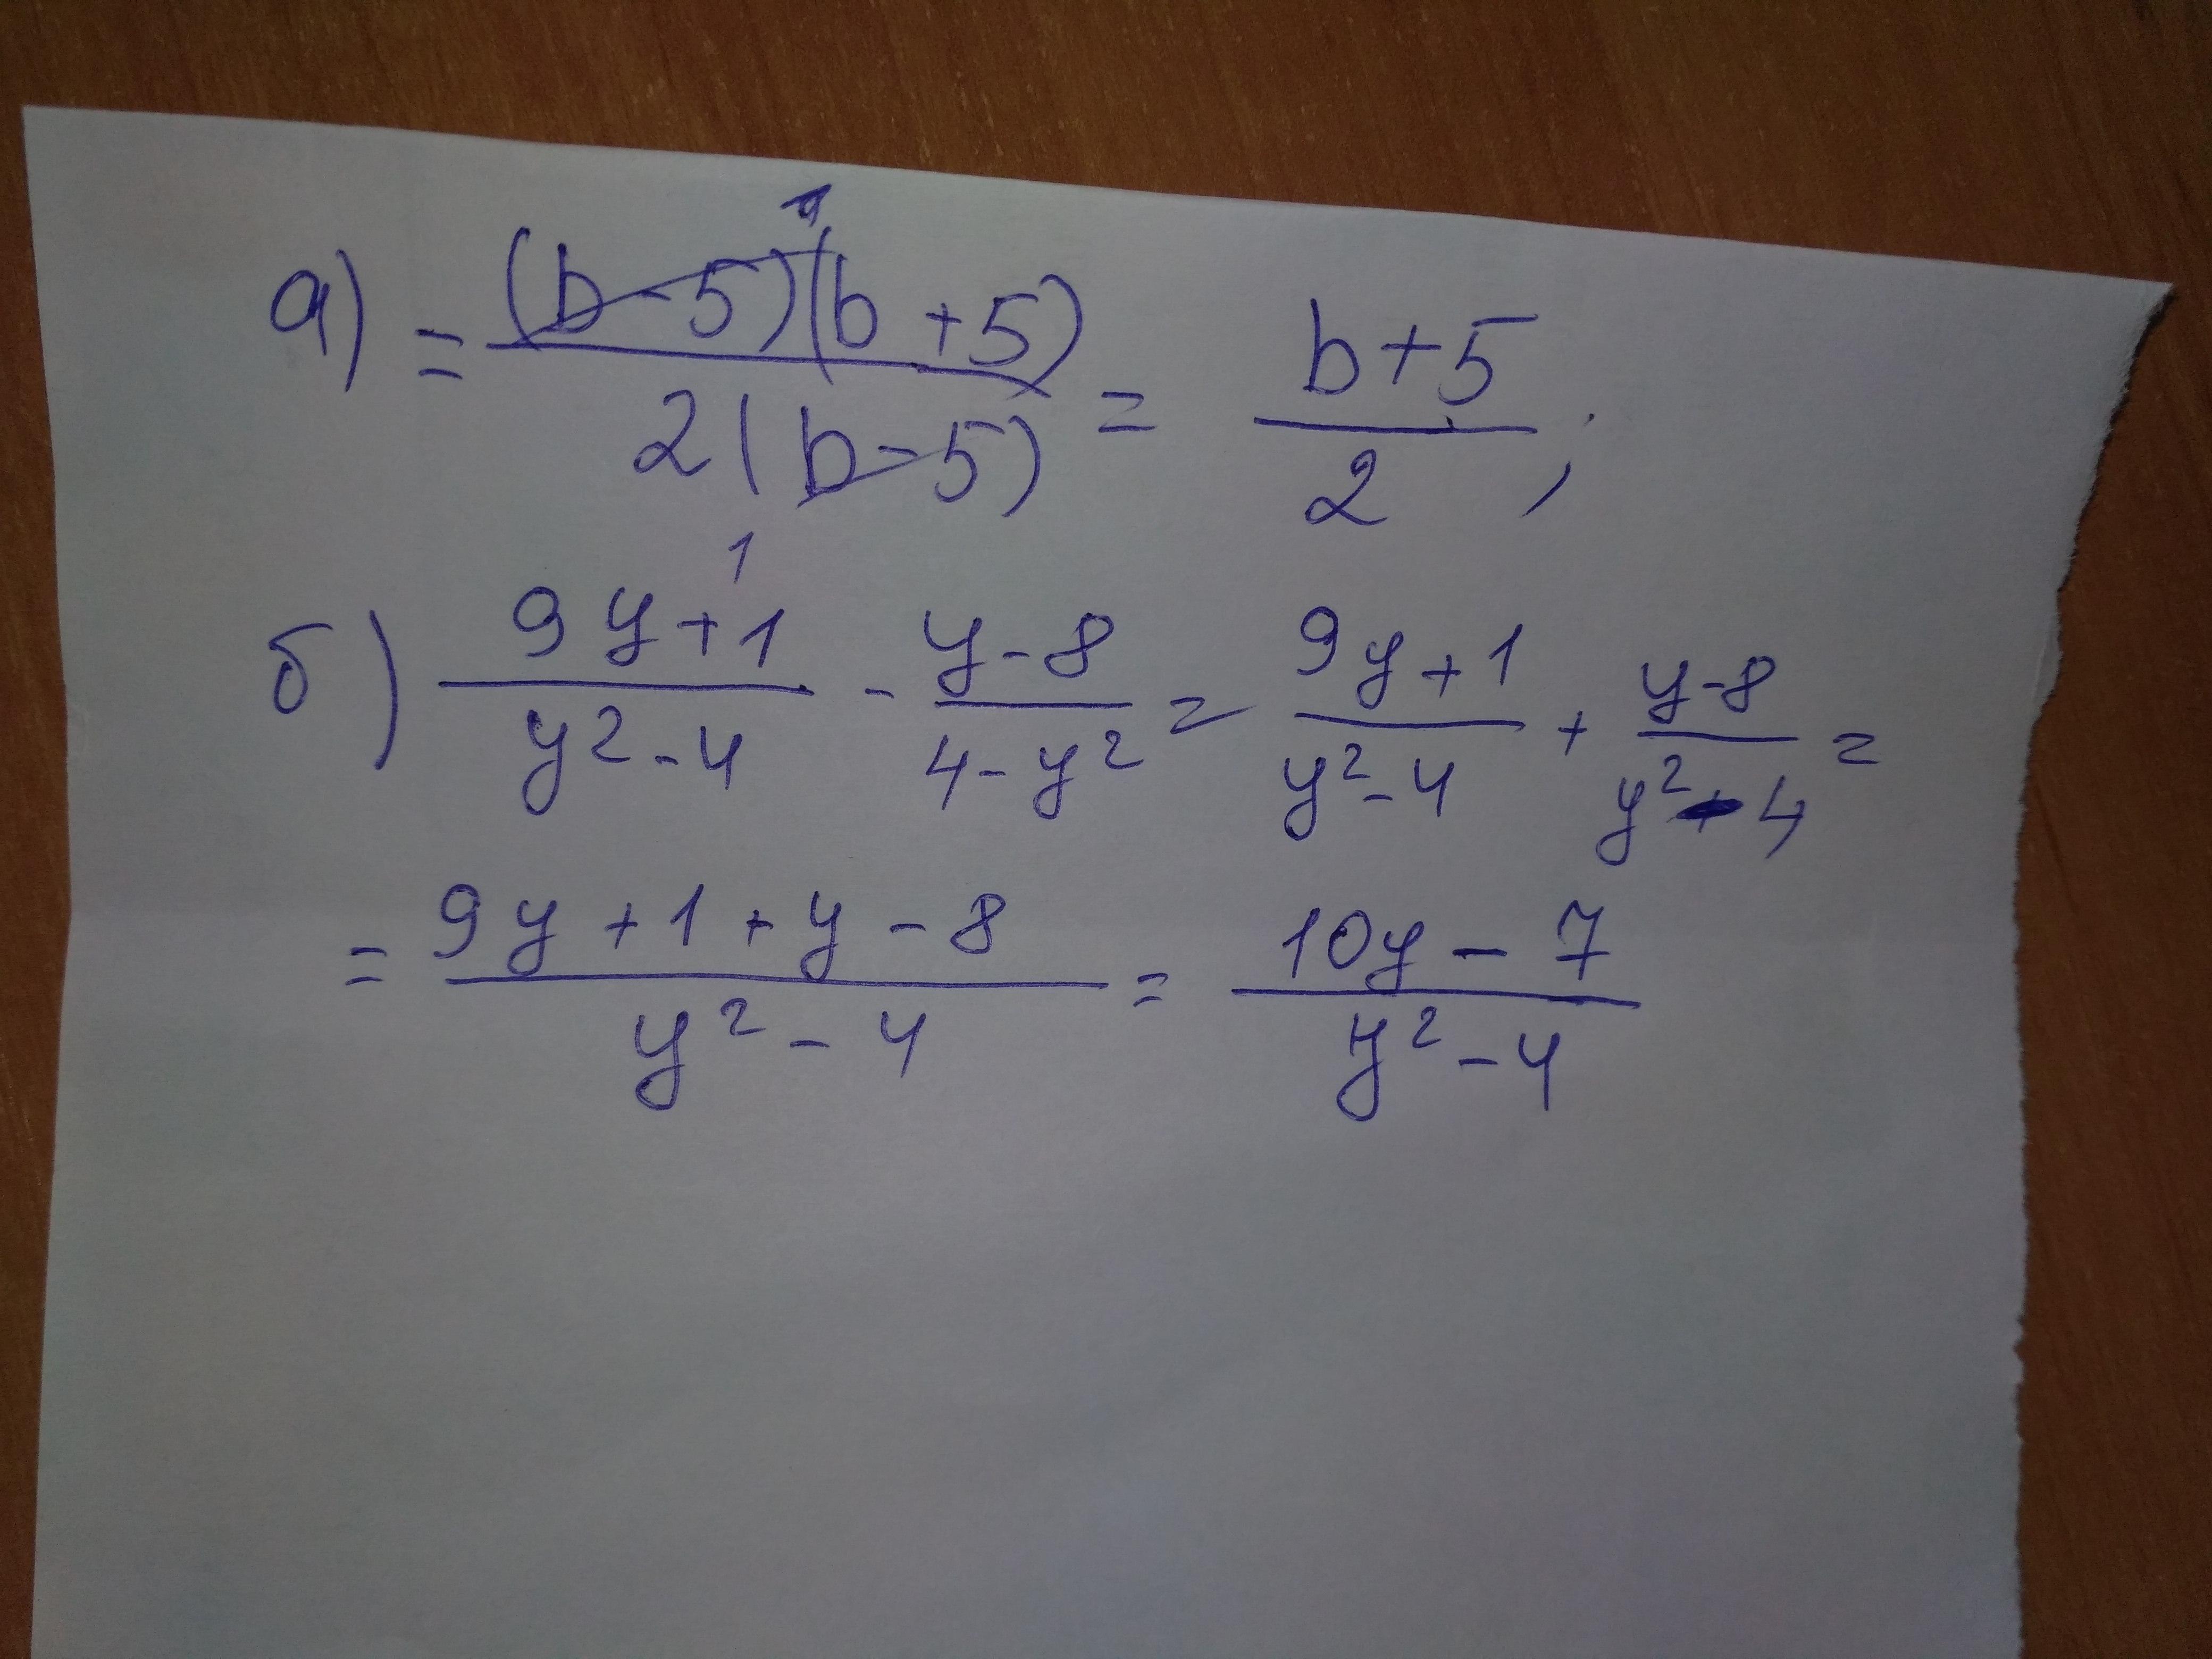 а) = (b-5)(b+5) / 2(b-5) = b+5 / 2 ;
1
1
б) 9y+1 / y²-4 - y-8 / 4-y² = 9y+1 / y²-4 + y-8 / y²-4 =
= 9y+1+y-8 / y²-4 = 10y-7 / y²-4